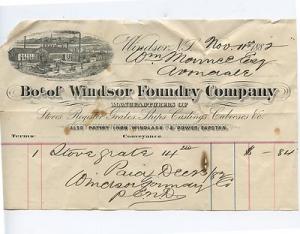 Windsor, N.S. Nov. 11th 1882
Wm
Avondale
Bot of Windsor Foundry Company
MANUFACTURERS OF
Stoves, Register Grates, Ships Castings, Cabooses &c.
ALSO PATENT IRON WINDLASS & POWER CAPSTAN.
Terms Conveyance
1 Stove grate 14 $ - 84
Paid Decr
Windsor Foundry Co